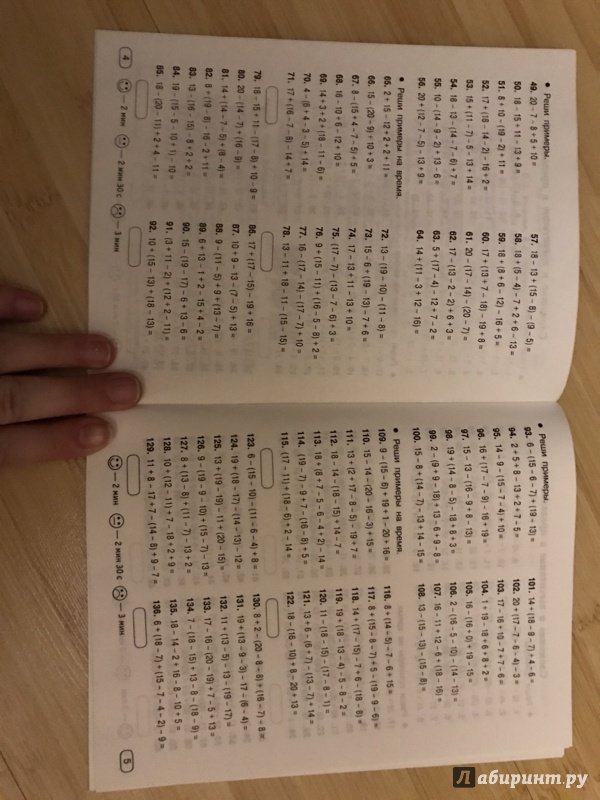 ● Реши примеры.
49. 20 – 7 – 8 + 5 + 10 =
50. 18 – 15 + 11 – 13 + 9 =
51. 5 + 10 – (19 – 2) + 11 =
52. 17 + (18 – 14 – 2) – 16 + 2 =
53. 15 + (11 – 7) – 6 – 13 + 14 =
54. 18 – 13 – (14 – 7 – 6) + 7 =
55. 10 – (14 – 9 – 2) + 13 – 6 =
56. 20 + (12 – 7 – 5) – 13 + 9 =
57. 18 – 13 + (15 – 8) – (9 – 5) =
58. 18 + (5 – 4) – 7 + 2 + 6 – 13 =
59. 18 + (8 + 6 – 12) – 16 + 5 =
60. 17 + (13 + 7 – 18) – 19 + 8 =
61. 20 – (17 – 14) – (20 – 7) =
62. 17 – (13 – 2 – 2) + 6 + 3 =
63. 5 + (17 – 4) – 12 + 7 – 2 =
64. 14 + (11 – 3 + 12 – 16) =
● Реши примеры на время.
65. 2 + 15 – 12 + 2 + 2 + 11 =
66. 15 – (20 – 9) + 10 + 3 =
67. 8 – (15 + 4 – 7 – 5) + 5 =
68. 16 – 10 + 6 – 12 + 10 =
69. 14 + 3 + 2 + (18 – 11 – 6) =
70. 4 – (6 + 4 – 3 – 5) + 14 =
71. 17 + (16 – 7 – 8) – 14 + 7 =
72. 13 – (19 – 10) – (11 – 8) =
73. 15 – 6 + (19 – 13) – 7 + 6 =
74. 17 – 13 + 11 – 13 + 10 =
75. (17 – 7) – (13 – 7 – 6) + 3 =
76. 9 + (15 – 11) + (16 – 5 – 8) + 2 =
77. 16 – (17 – 14) – (17 – 7) + 10 =
78. 13 – 11 + 18 – 11 – (15 – 15) =
79. 18 – 15 + 11 – (17 – 8) + 10 – 9 =
80. 20 – (14 – 7) + (16 – 9) =
81. 14 + (14 – 7 – 5) + (8 – 4) =
82. 8 + (19 – 8) – 16 – 2 + 11 =
83. 13 – (16 – 15) – 8 + 2 + 2 =
84. 19 – (15 – 5 – 10 + 1) – 10 =
85. 18 – (20 – 11) + 2 + 4 – 11 =
86. 17 + (17 – 15) – 19 + 16 =
87. 10 + 9 – 13 – (7 – 5) + 13 =
88. 9 – (11 – 5) + 9 + (13 – 7) =
89. 6 + 13 – 1 + 2 – 15 + 4 – 2 =
90. 15 – (19 – 17) – 6 + 13 – 6 =
91. (3 + 11 – 2) + (12 + 2 – 11) =
92. 10 + (15 – 13) + (18 – 13) =
4
— 2 мин
— 2 мин 30 с
— 3 мин
● Реши примеры.
93. 6 – (15 – 6 – 7) + (19 – 13) =
94. 2 + 5 + 8 – 13 + 2 + 7 – 5 =
95. 14 – 9 – (15 – 7 – 4) + 10 =
96. 16 + (17 – 7 – 9) – 16 + 19 =
97. 15 – 13 – (16 – 9 + 8 – 13) =
98. 19 + (14 – 8 – 5) – 18 + 8 + 3 =
99. 2 – (9 + 9 – 18) + 13 – 6 + 9 – 8 =
100. 15 – 8 + (14 – 7) – 13 + 14 – 15 =
101. 14 + (18 – 9 – 7) + 4 – 6 =
102. 20 + (17 – 7 – 6 – 4) – 3 =
103. 17 – 16 + 10 – 7 + 7 – 6 =
104. 1 + 19 – 18 + 6 + 8 + 2 =
105. 16 – (16 + 0) + 19 – 15 =
106. 2 – (16 – 5 – 10) – (14 – 13) =
107. 16 – 11 + 12 – 6 + (18 – 16) =
108. 13 – (15 – 13) – (15 – 8) =
● Реши примеры на время.
109. 9 – (15 – 8) + 19 + 1 – 20 + 16 =
110. 15 – 14 – (20 – 16 – 3) + 15 =
111. 13 + (2 + 17 – 8 – 5) – 19 + 7 =
112. 18 – 14 – (18 – 15) + 14 – 7 =
113. 18 + (8 + 7 – 5 – 6 – 4 + 2) – 14 =
114. (19 – 7) – 9 + 7 – (16 – 8) + 5 =
115. (17 – 11) + (18 – 6) + 2 – 14 =
116. 8 + (14 – 5) – 7 – 6 + 15 =
117. 8 + (15 – 6 – 7) + 5 – (19 – 9 – 6) =
118. 14 + (17 – 15) – 7 + 6 – (18 – 8) =
119. 19 + (18 – 13 – 4) – 5 – 8 – 2 =
120. 11 – (18 – 15) – (17 – 8 – 1) =
121. 13 + 6 – (6 + 7) – (13 – 7) + 14 =
122. 18 – (16 – 10) + 8 – 20 + 13 =
123. 6 – (15 – 10) – (11 – 6 – 4) + 8 =
124. 19 + (18 – 17) – (14 – 13) – 12 =
125. 13 + (19 – 19) – 11 – (20 – 15) =
126. 9 – (19 – 9 – 10) + (15 – 7) – 13 =
127. 8 + (13 – 8) + (11 – 7) – 13 + 2 =
128. 10 + (12 – 11) + 7 – 18 + 2 + 9 =
129. 11 + 8 – 17 + 7 – (14 – 8) + 9 – 7 =
130. 8 + 2 – (20 – 8 – 8) + (16 – 7) – 8 =
131. 19 + (13 – 9 – 3) – 17 – (6 – 4) =
132. 11 + (13 – 5) – 13 – (19 – 17) =
133. 17 – 16 – (20 – 19) + 7 – 5 + 13 =
134. 7 – (18 – 15) + 13 – 8 – (18 – 9) =
135. 18 – 14 – 2 + 16 – 8 – 10 + 5 =
136. 6 + (18 – 7) + (15 – 7 – 4 – 2) – 9 =
— 2 мин
— 2 мин 30 с
— 3 мин
5
Лабиринт.ру